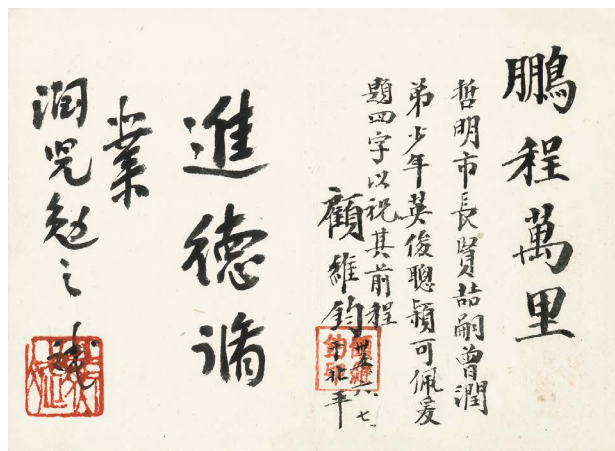 鵬程萬里
哲明市長賢喆嗣曾潤
弟少年英俊聰穎可佩爰
題四字以祝其前程
顧維鈞
卅五、六、七、
于北平
進德脩
業
潤兒勉之